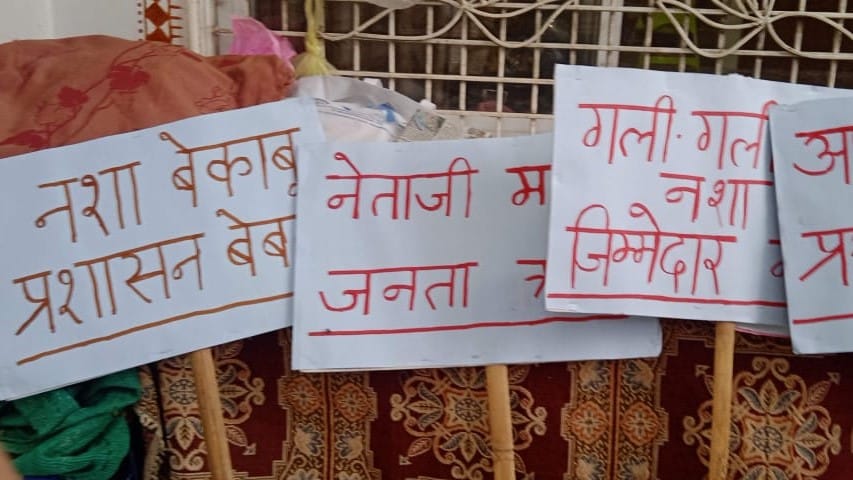 नशा बेकाबू
प्रशासन बेब
नेताजी म
जनता
गली-गली
नशा
जिम्मेदार
अ
प्र